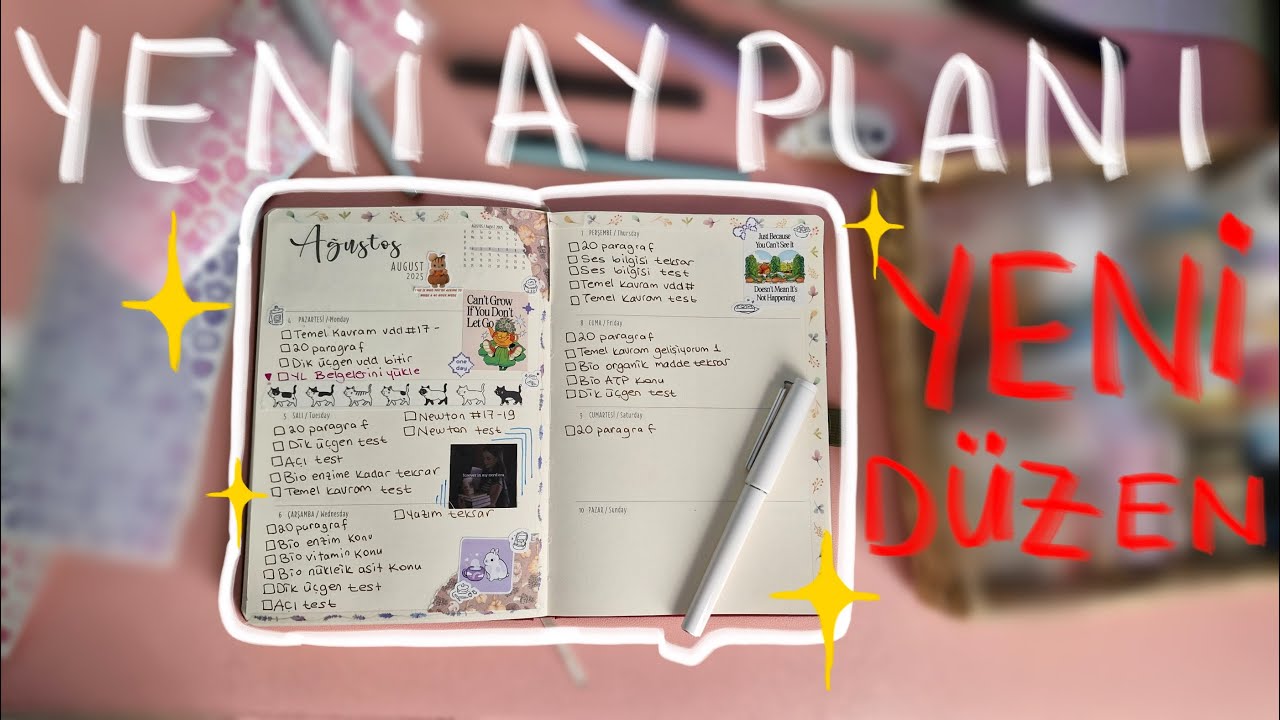 YENİ AY PLANI
YENİ
DÜZEN
Ağustos
AUGUST
2025
Can't Grow
If You Don't
Let Go
4 PAZARTESİ / Monday
Temel Kavram vdd #17 -
20 paragraf
Dik üçgen vdd bitir
YL Belgelerini yükle
one
day
5 SALI / Tuesday
20 paragraf
Dik üçgen test
Acı test
Bio enzime kadar tekrar
Temel kavram test
Newton #17-19
Newton test
6 ÇARŞAMBA / Wednesday
20 paragraf
Bio enzim konu
Bio vitamin konu
Bio nükleik asit konu
Dik üçgen test
Acı test
Yazım tekrar
7 PERŞEMBE / Thursday
20 paragraf
Ses bilgisi tekrar
Ses bilgisi test
Temel Kavram vdd#
Temel kavram test
Just Because
You Can't See It
Doesn't Mean It's
Not Happening
8 CUMA / Friday
20 paragraf
Temel kavram gelişiyorum 1
Bio organik madde tekrar
Bio ATP konu
Dik üçgen test
9 CUMARTESİ / Saturday
20 paragraf
10 PAZAR / Sunday